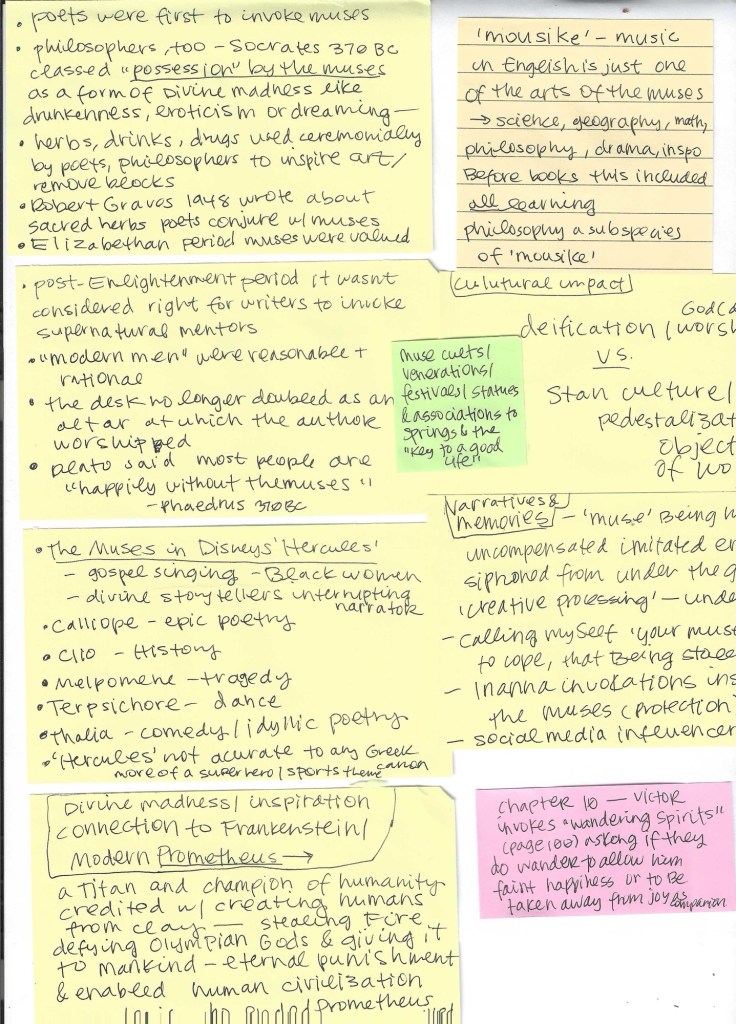 • poets were first to invoke muses
• philosophers, too – Socrates 370 BC
classed "possession" by the muses
as a form of Divine madness like
drunkenness, eroticism or dreaming —
• herbs, drinks, drugs used ceremonially
by poets, philosophers to inspire art/
remove blocks
• Robert Graves 1948 wrote about
sacred herbs poets conjure w/ muses
• Elizabethan period muses were valued
'mousike' – music
in English is just one
of the arts of the muses
→ science, geography, math,
philosophy, drama, inspo
Before books this included
all learning
philosophy a subspecies
of 'mousike'
• post-Enlightenment period it wasnt
considered right for writers to invoke
supernatural mentors
• "modern men" were reasonable +
rational
• the desk no longer doubled as an
altar at which the author
worshipped
• plato said most people are
"happily without the muses"
– phaedrus 370 BC
culutural impact
deification / worsh
vs.
Stan culture /
pedestalizat
object
of wo
muse cults/
venerations/
festivals/ statues
& associations to
springs & the
"key to a good
life"
• the Muses in Disneys 'Hercules'
– gospel singing – Black women
– divine storytellers interrupting
narrator
• calliope – epic poetry
• Clio – History
• Melpomene – tragedy
• Terpsichore – dance
• Thalia – comedy / idyllic poetry
• 'Hercules' not acurate to any Greek
canon
more of a superhero / sports theme
Narratives &
memories – 'muse' Being
uncompensated imitated
siphoned from under the
'creative processing' – unde
– calling myself 'your muse
to cope, that Being
– Inanna invocations ins
the muses (protection)
– social media influencer
Divine madness / inspiration
connection to Frankenstein /
Modern Prometheus →
a Titan and champion of humanity
credited w/ creating humans
from clay — stealing Fire
defying Olympian Gods & giving it
to mankind – eternal punishment
& enabled human civilization
Prometheus
chapter 10 — victor
invokes "wandering spirits"
(page 100) asking if they
do wander to allow him
faint happiness or to be
taken away from joy as
companion